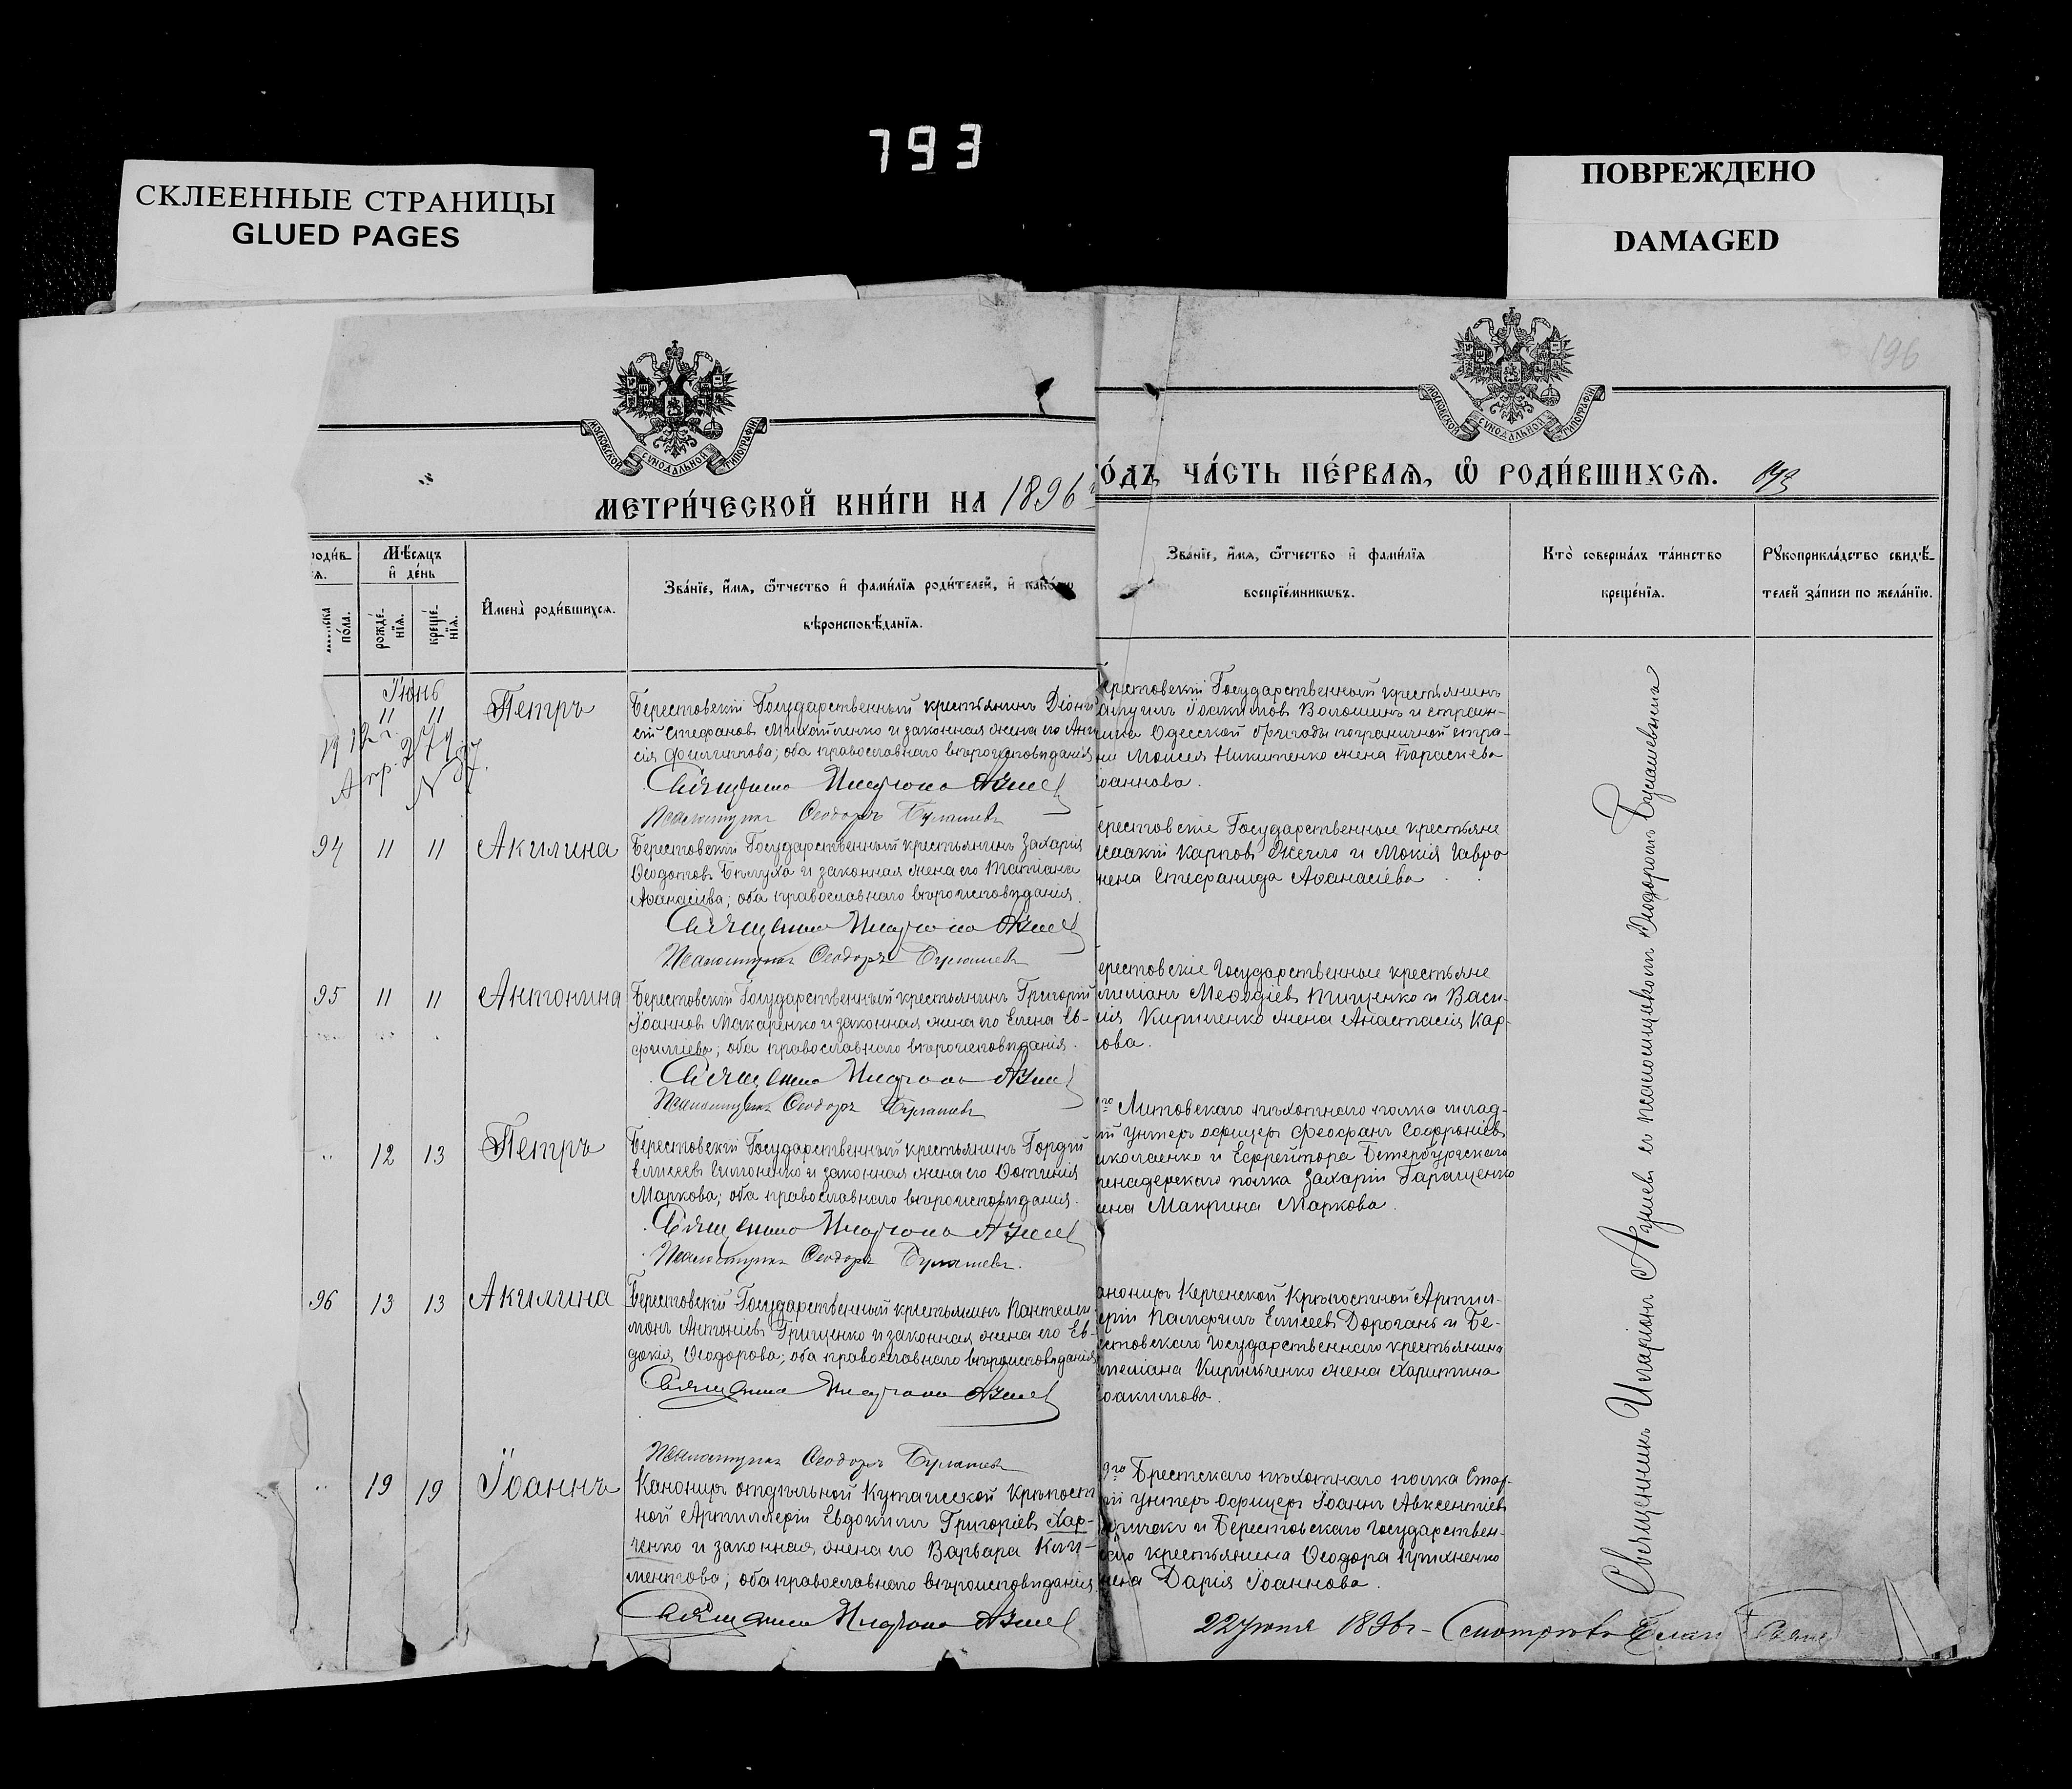 793
СКЛЕЕННЫЕ СТРАНИЦЫ
GLUED PAGES
ПОВРЕЖДЕНО
DAMAGED
196
МОСКОВСКОЙ СѴНОДАЛЬНОЙ ТИПОГРАФІИ
МОСКОВСКОЙ СѴНОДАЛЬНОЙ ТИПОГРАФІИ
МЕТРИ́ЧЕСКОЙ КНИ́ГИ НА 1896
О́ДЪ, ЧА́СТЬ ПЕ́РВАѦ, Ѡ҆ РОДИ́ВШИХСѦ.
роди́в-
ѧ.
по́ла.
Мѣ́сѧцъ
и҆ де́нь
рожде́-
нїѧ.
креще́-
нїѧ.
И҆мена̀ роди́вшихсѧ.
Зва́нїе, и҆́мѧ, ѻ҆́тчество и҆ фами́лїѧ роди́телей, и҆
вѣроисповѣ́данїѧ.
Зва́нїе, и҆́мѧ, ѻ҆́тчество и҆ фами́лїѧ
воспрїе́мникѡвъ.
Кто̀ соверша́лъ та́инство
креще́нїѧ.
Рꙋкоприкла́дство свидѣ́-
телей за́писи по жела́нїю.
Іюнь
11 11
Петръ
Берестовскій Государственный крестьянинъ Діони-
сій Стефановъ Михайленко и законная жена его Анι
сія Филиппова; оба православнаго вѣроисповѣданія
Священникъ Иларіонъ
Псаломщикъ Ѳеодоръ
ерестовскій Государственный крестьянинъ
Іоакимовъ Волошинъ и страж-
ника Одесской бригады пограничной стра-
жи Моисея Никитенко жена Параскева
оаннова.
94 11 11 Акилина
Берестовскій Государственный крестьянинъ Захарія
Ѳеодотовъ Бѣлуха и законная жена его Татіана
Аѳанасіева; оба православнаго вѣроисповѣданія.
Священникъ Иларіонъ
Псаломщикъ Ѳеодоръ
ерестовскіе Государственные крестьяне
саакій Карповъ Жегло и Мокія Гавро
жена Стефанида Аѳанасіева
95 11 11 Антонина
Берестовскій Государственный крестьянинъ Григорій
Іоанновъ Макаренко и законная жена его Елена Ев-
фиміева; оба православнаго вѣроисповѣданія.
Священникъ Иларіонъ
Псаломщикъ Ѳеодоръ
ерестовскіе Государственные крестьяне
миліанъ Меѳодіевъ Тищенко и Васи-
лія Кириченко жена Анастасія Кар-
пова.
12 13 Петръ
Берестовскій Государственный крестьянинъ Гордій
Елисеевъ и законная жена его Фотинія
Маркова; оба православнаго вѣроисповѣданія.
Священникъ Иларіонъ
Псаломщикъ Ѳеодоръ
го Литовскаго пѣхотнаго полка млад-
ій унтеръ офицеръ Феофанъ Софроніевъ
иколаенко и Ефрейтора Петербургскаго
ренадерскаго полка Захарій Гаращенко
ена Макрина Маркова.
96 13 13 Акилина
Берестовскій Государственный крестьянинъ Пантелеи-
монъ Антоніевъ Грищенко и законная жена его Ев-
докія Ѳеодорова; оба православнаго вѣроисповѣданія
Священникъ Иларіонъ
Псаломщикъ Ѳеодоръ
анониръ Керченской Крѣпостной Артил-
еріи Памфилъ Елисеевъ Дороганъ и Бе-
стовскаго Государственнаго крестьянина
миліана Кирильченко жена Харитина
оакимова.
19 19 Іоаннъ
Канониръ отдѣльной Кутаисской Крѣпост
ной Артиллеріи Евдокимъ Григоріевъ Хар-
ченко и законная жена его Варвара Кли-
ментова; оба православнаго вѣроисповѣданія.
Священникъ Иларіонъ
го Брестскаго пѣхотнаго полка Стар-
ій унтеръ офицеръ Іоаннъ Авксентіевъ
и Берестовскаго Государствен-
аго крестьянина Ѳеодора
жена Дарія Іоаннова.
Священникъ Иларіонъ съ псаломщикомъ Ѳеодоромъ